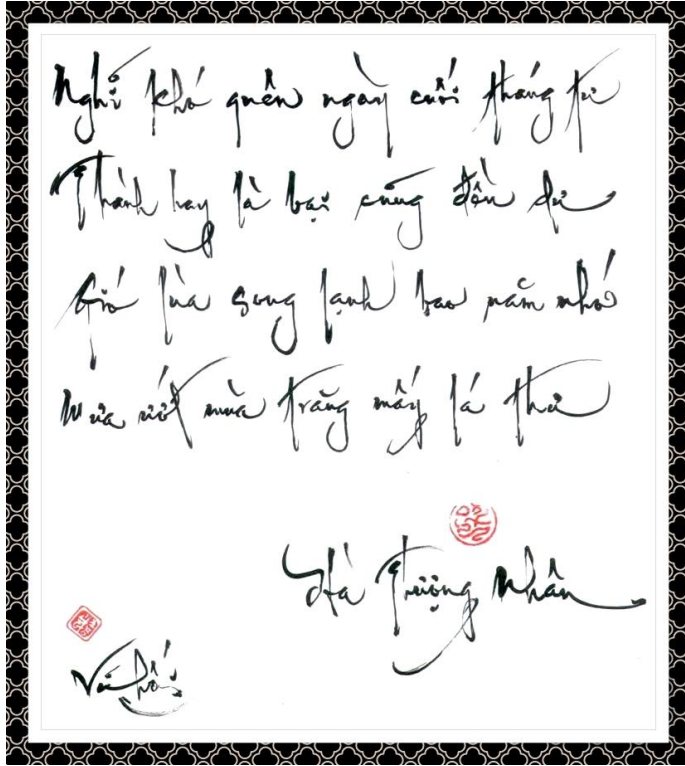 Nghĩ khó quên ngày cuối tháng tư
Thành hay là bại cũng dư
Gió lùa song lạnh bao năm nhớ
Mưa ướt mùa trăng mấy lá thư
Hà Thượng Nhân
Vũ Hối